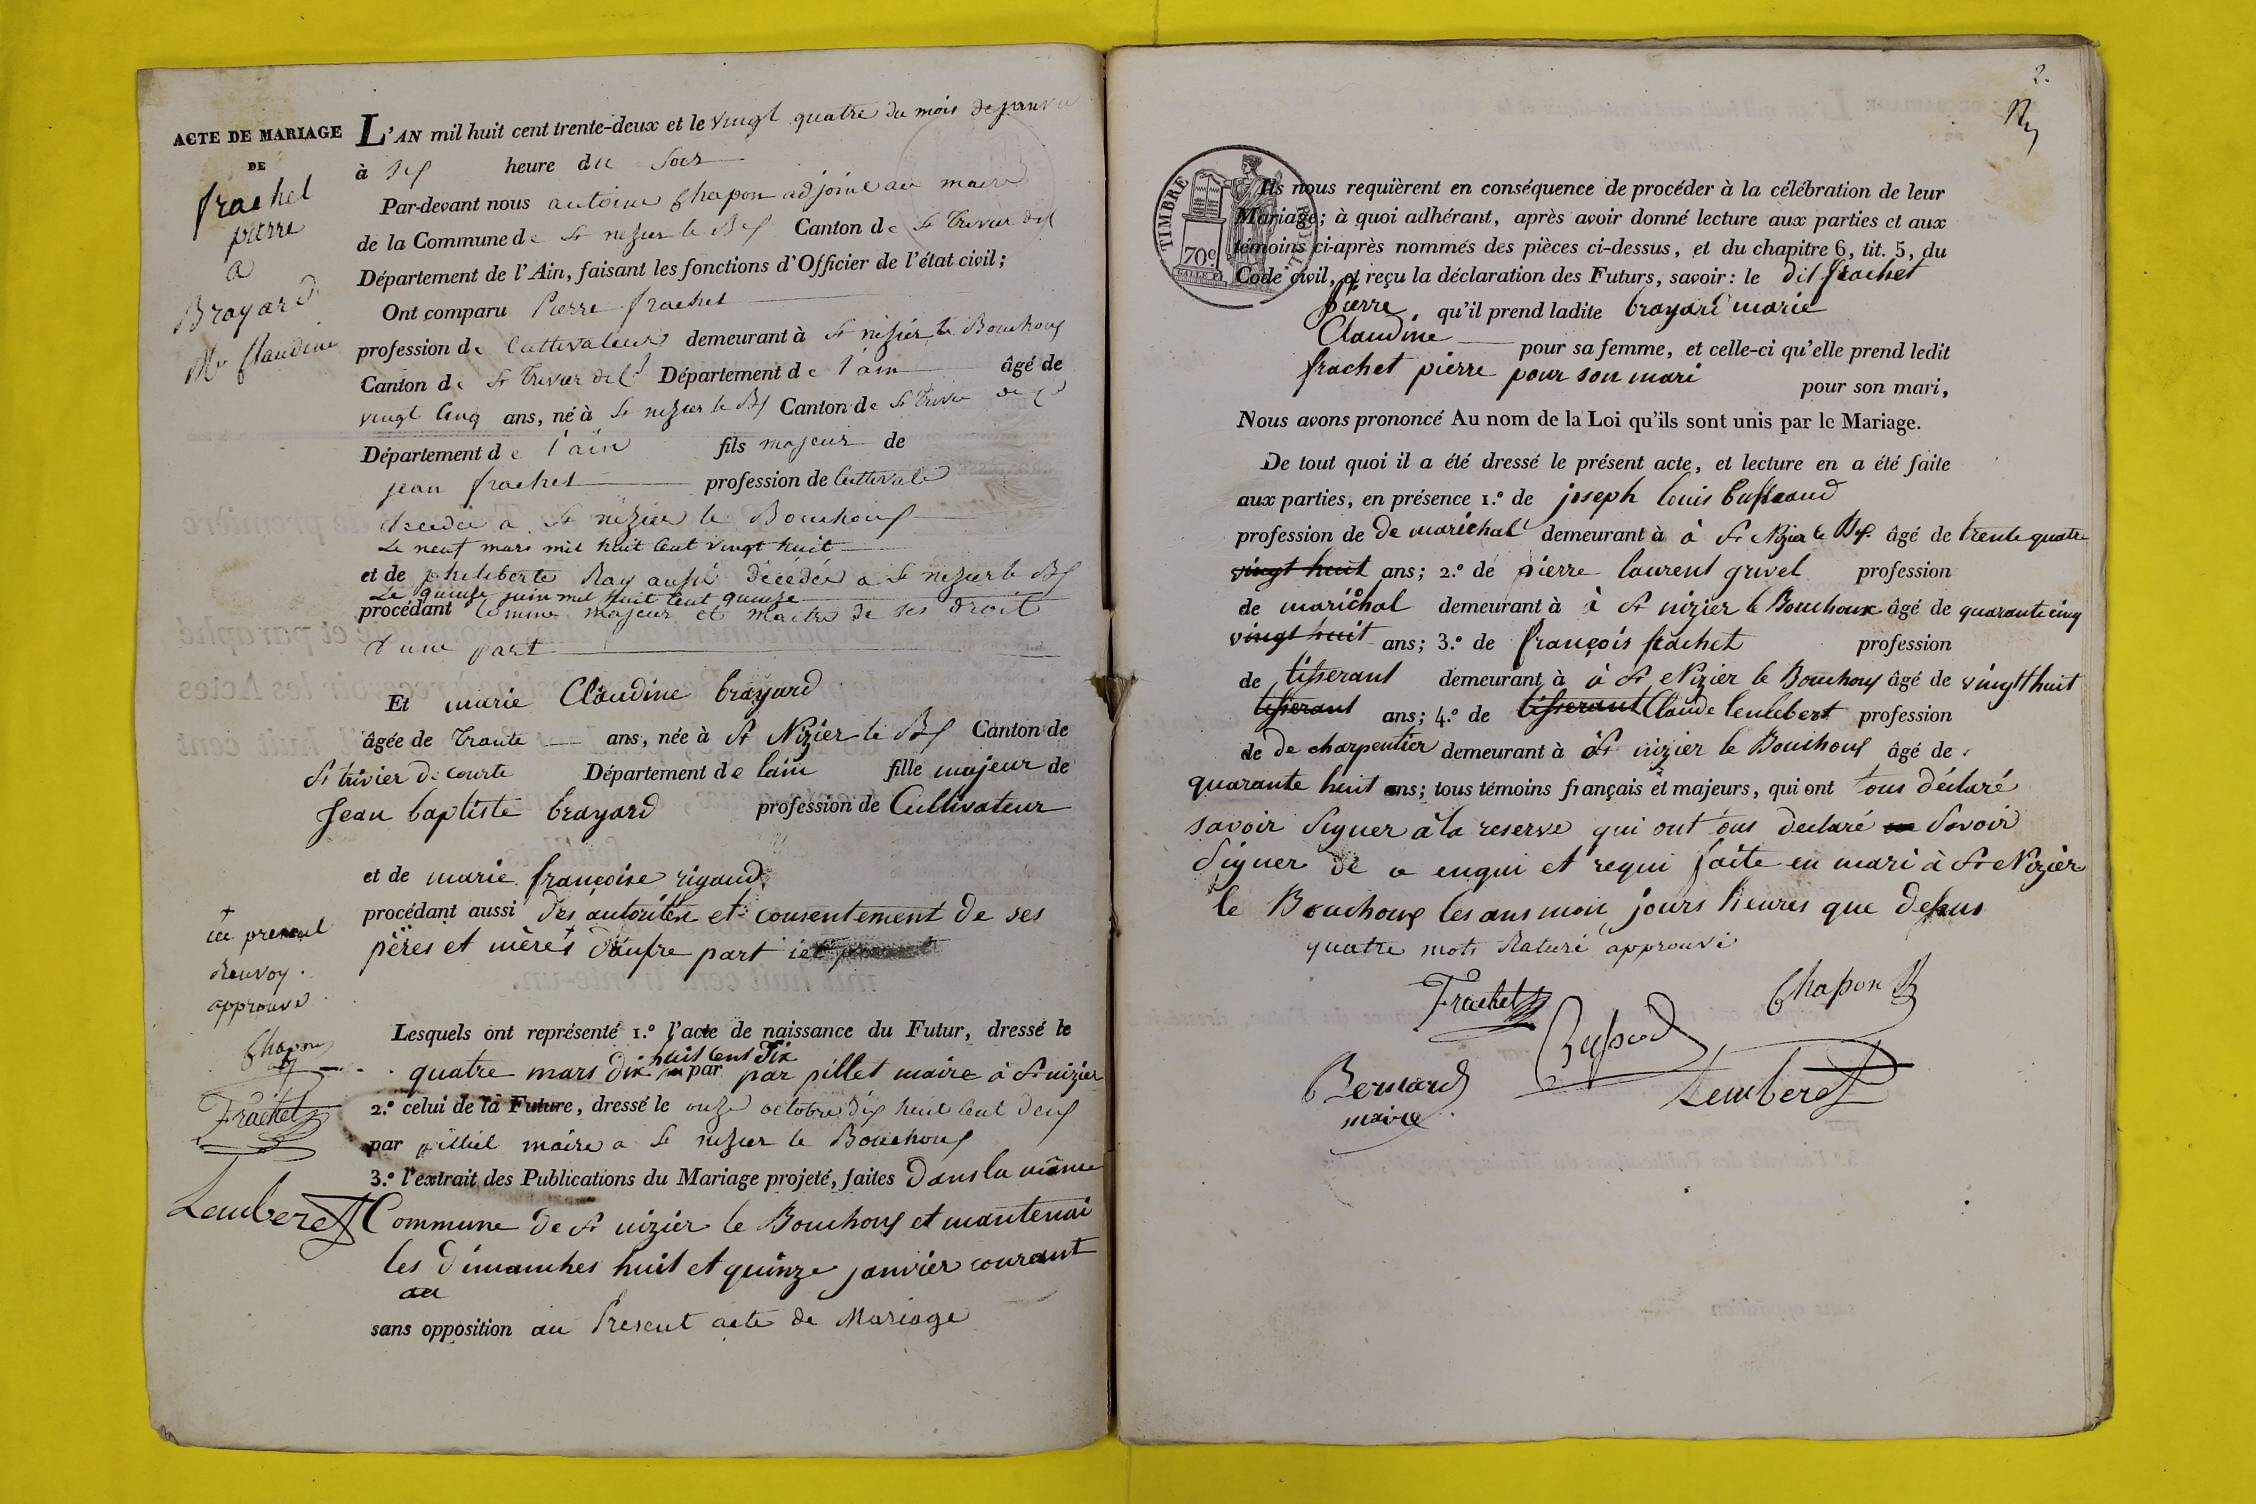 ACTE DE MARIAGE
DE
frachet
pierre
a
Brayard
Mie Claudine
L'AN mil huit cent trente-deux et le vingt quatre du mois de janvier
à six heure du Soir
Par-devant nous antoine Chapon adjoint au maire
de la Commune de St nizier le Bx Canton de St Trivier de C
Département de l'Ain, faisant les fonctions d'Officier de l'état civil;
Ont comparu Pierre frachet
profession de Cultivateur demeurant à St nizier le Bouchoux
Canton de St Trivier de Ct Département de l'ain âgé de
vingt cinq ans, né à St nizier le Bx Canton de St Trivier de Ct
Département de l'ain fils majeur de
jean frachet profession de Cultivate
decedée a St nizier le Bouchoux
Le neuf mars mil huit cent vingt huit
et de philiberte Ray aussi décédée a St nizier le Bx
Le quinze juin mil huit cent quinze
procédant comme majeur et maitre de ses droit
d'une part
Et marie Claudine brayard
âgée de Trante ans, née à St Nizier le Bx Canton de
St trivier de courte Département de lain fille majeur de
Jean baptiste brayard profession de Cultivateur
et de marie françoise rigaud
procédant aussi des autorités et consentement de ses
pères et mères d'autre part
+
ici present
Renvoy
approuvé
Chapon
Frachet
Lemberet
Lesquels ont représenté 1.° l'acte de naissance du Futur, dressé le
huit cent six
quatre mars dix par par pillet maire à St nizier
2.° celui de la Future, dressé le onze octobre dix huit cent deux
par pilliet maire a St nizier le Bouchoux
3.° l'extrait des Publications du Mariage projeté, faites Dans la même
Commune de St nizier le Bouchoux et mantenai
les dimanches huit et quinze janvier courant
au
sans opposition au Present acte de Mariage
2.
TIMBRE
ROYAL
70c
Ils nous requièrent en conséquence de procéder à la célébration de leur
Mariage; à quoi adhérant, après avoir donné lecture aux parties et aux
témoins ci-après nommés des pièces ci-dessus, et du chapitre 6, tit. 5, du
Code civil, et reçu la déclaration des Futurs, savoir: le dit frachet
pierre qu'il prend ladite brayard marie
Claudine pour sa femme, et celle-ci qu'elle prend ledit
frachet pierre pour son mari pour son mari,
Nous avons prononcé Au nom de la Loi qu'ils sont unis par le Mariage.
De tout quoi il a été dressé le présent acte, et lecture en a été faite
aux parties, en présence 1.° de joseph louis
profession de de marichal demeurant à à St Nizier le Bx âgé de trente quatre
vingt huit ans; 2.° de pierre laurent grivel profession
de marichal demeurant à à St nizier le Bouchoux âgé de quarante cinq
vingt huit ans; 3.° de françois frachet profession
de tisserant demeurant à à St Nizier le Bouchoux âgé de vingtt huit
tisserant ans; 4.° de tisserant Claude profession
de de charpentier demeurant à à St nizier le Bouchoux âgé de
quarante huit ans; tous témoins français et majeurs, qui ont tous déclaré
savoir signer a la reserve qui ont tous declaré savoir
signer de a enqui et requi faite en mari à St Nizier
le Bouchoux les ans mois jours heures que desus
quatre mots Raturé approuvé
Frachet
Chapon
Bernard
maire
Lemberet